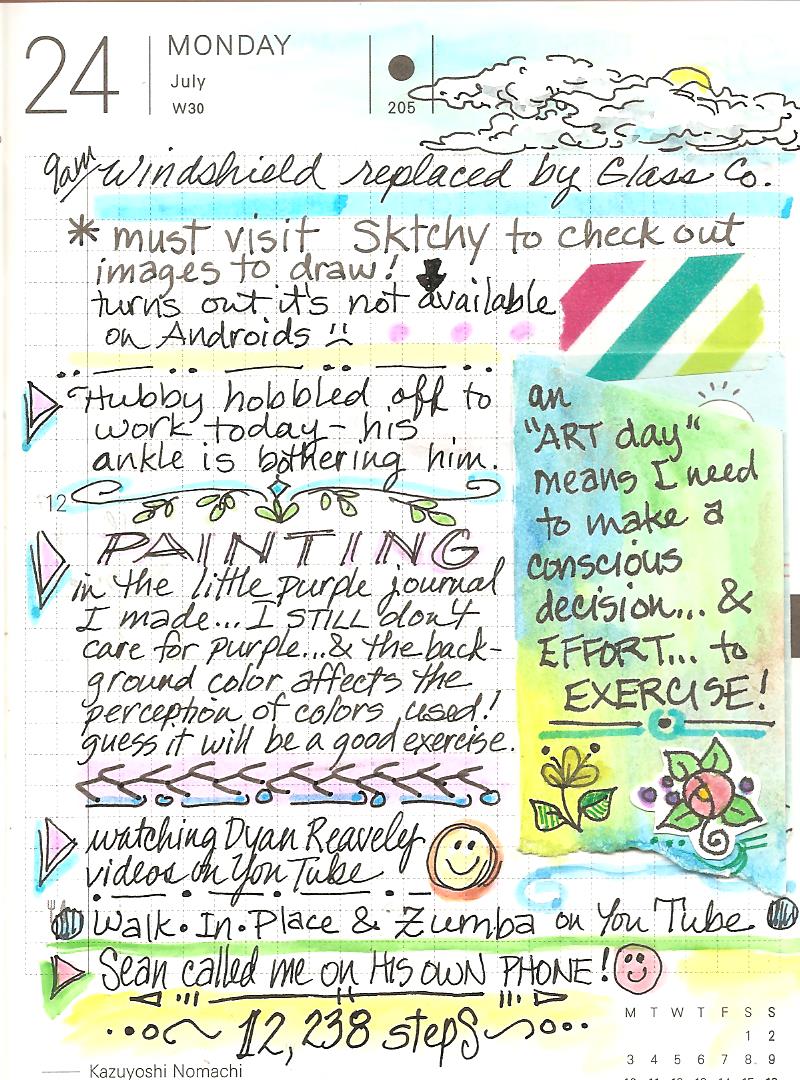 24 MONDAY
July
W30
205
9am Windshield replaced by Glass Co.
* must visit Sktchy to check out
images to draw!
turns out it's not available
on Androids
Hubby hobbled off to
work today - his
ankle is bothering him.
12
PAINTING
in the little purple journal
I made... I STILL don't
care for purple...& the back-
ground color affects the
perception of colors used!
guess it will be a good exercise.
an
"ART day"
means I need
to make a
conscious
decision... &
EFFORT... to
EXERCISE!
watching Dyan Reavely
videos on You Tube
Walk•In•Place & Zumba on You Tube
Sean called me on His OWN PHONE!
12,238 steps
M T W T F S S
1 2
3 4 5 6 7 8 9
Kazuyoshi Nomachi